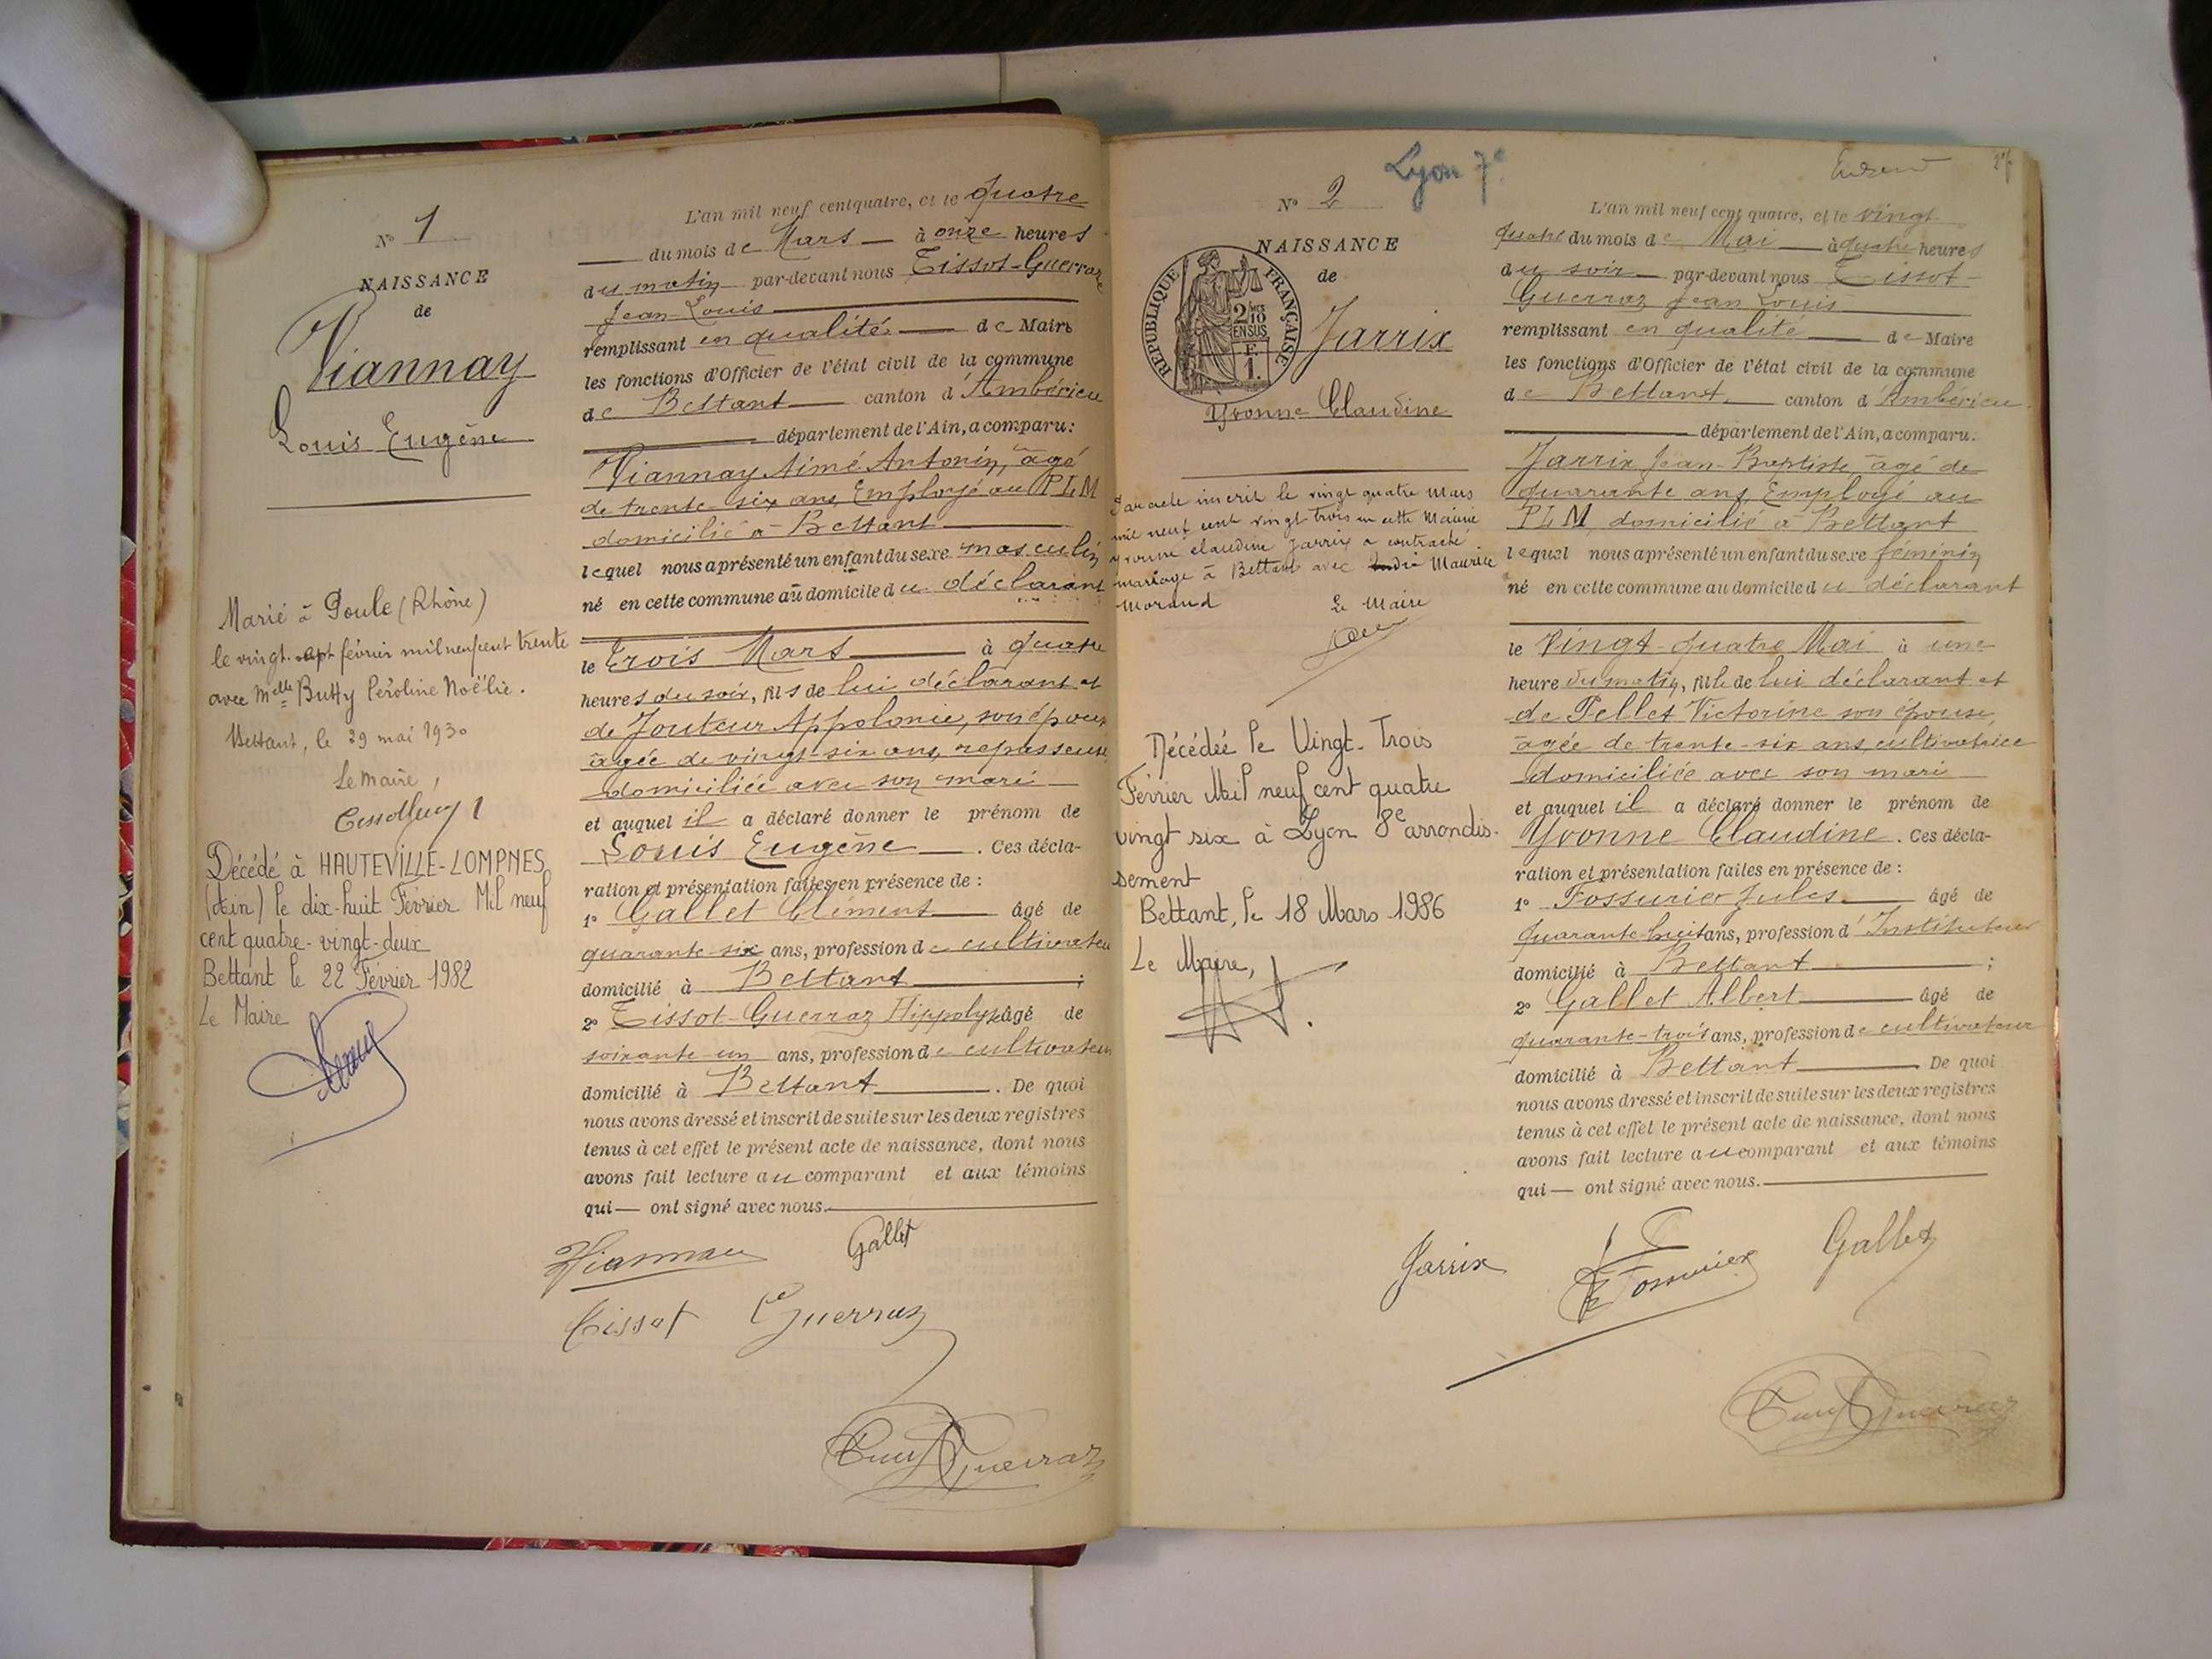 N° 1
NAISSANCE
de
Viannay
Louis Eugène
Marié à Poule (Rhône)
le vingt-sept février mil neuf cent trente
avec Melle Butty Péroline Noëlie.
Bettant, le 29 mai 1930
Le maire,
Décédé à HAUTEVILLE-LOMPNES
(Ain) le dix-huit Février Mil neuf
cent quatre-vingt-deux
Bettant le 22 Février 1982
Le Maire
L'an mil neuf cent quatre, et le quatre
du mois de Mars à onze heures
du matin par-devant nous Tissot-Guerraz
Jean-Louis
remplissant en qualité de Maire
les fonctions d'Officier de l'état civil de la commune
de Bettant canton d'Ambérieu
département de l'Ain, a comparu:
Viannay Aimé Antonin, âgé
de trente-six ans, Employé au PLM
domicilié à Bettant
lequel nous a présenté un enfant du sexe masculin
né en cette commune au domicile du déclarant
le Trois Mars à quatre
heures du soir, fils de lui déclarant et
de Jouteur Appolonie, son épouse
âgée de vingt-six ans, repasseuse
domiciliée avec son mari
et auquel il a déclaré donner le prénom de
Louis Eugène. Ces décla-
ration et présentation faites en présence de :
1° Gallet Clément âgé de
quarante-six ans, profession de cultivateur
domicilié à Bettant ;
2° Tissot-Guerraz Hippolyte âgé de
soixante-un ans, profession de cultivateur
domicilié à Bettant. De quoi
nous avons dressé et inscrit de suite sur les deux registres
tenus à cet effet le présent acte de naissance, dont nous
avons fait lecture au comparant et aux témoins
qui — ont signé avec nous.
Viannay Gallet
Tissot Guerraz
Guerraz
Lyon 7e
N° 2
NAISSANCE
de
RÉPUBLIQUE FRANÇAISE
2/10 EN SUS
F. 1.
Jarrix
Yvonne Claudine
Par acte inscrit le vingt quatre Mars
mil neuf cent vingt trois en cette Mairie
Yvonne Claudine Jarrix a contracté
mariage à Bettant avec Maurice
Morand
Le Maire
Décédée le Vingt-Trois
Février Mil neuf cent quatre
vingt six à Lyon 8e arrondis-
sement
Bettant, le 18 Mars 1986
Le Maire,
L'an mil neuf cent quatre, et le vingt-
quatre du mois de Mai à quatre heures
du soir par-devant nous Tissot-
Guerraz Jean Louis
remplissant en qualité de Maire
les fonctions d'Officier de l'état civil de la commune
de Bettant canton d'Ambérieu
département de l'Ain, a comparu.
Jarrix Jean-Baptiste, âgé de
quarante ans, Employé au
PLM, domicilié à Bettant
lequel nous a présenté un enfant du sexe féminin
né en cette commune au domicile du déclarant
le Vingt-quatre Mai à une
heure du matin, fille de lui déclarant et
de Pellet Victorine son épouse,
âgée de trente-six ans, cultivatrice
domiciliée avec son mari
et auquel il a déclaré donner le prénom de
Yvonne Claudine. Ces décla-
ration et présentation faites en présence de :
1° Fossurier Jules âgé de
quarante-huit ans, profession d'Instituteur
domicilié à Bettant ;
2° Gallet Albert âgé de
quarante-trois ans, profession de cultivateur
domicilié à Bettant De quoi
nous avons dressé et inscrit de suite sur les deux registres
tenus à cet effet le présent acte de naissance, dont nous
avons fait lecture au comparant et aux témoins
qui — ont signé avec nous.
Jarrix Fossurier Gallet
Guerraz